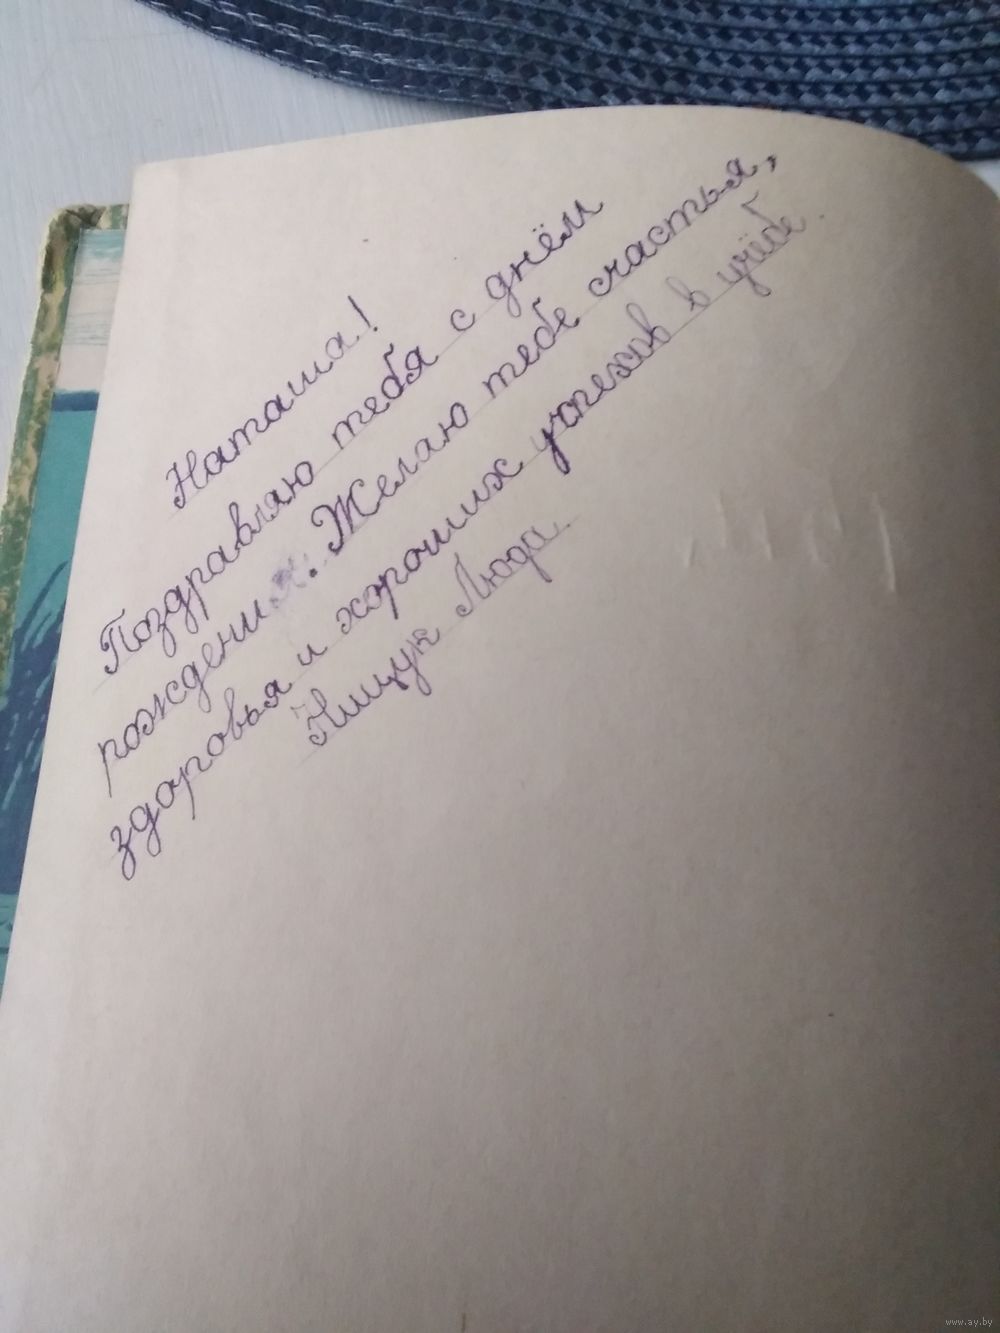 Наташа!
Поздравляю тебя с днём
рождения. Желаю тебе счастья,
здоровья и хороших успехов в учёбе.
Нищук Люда.
www.ay.by